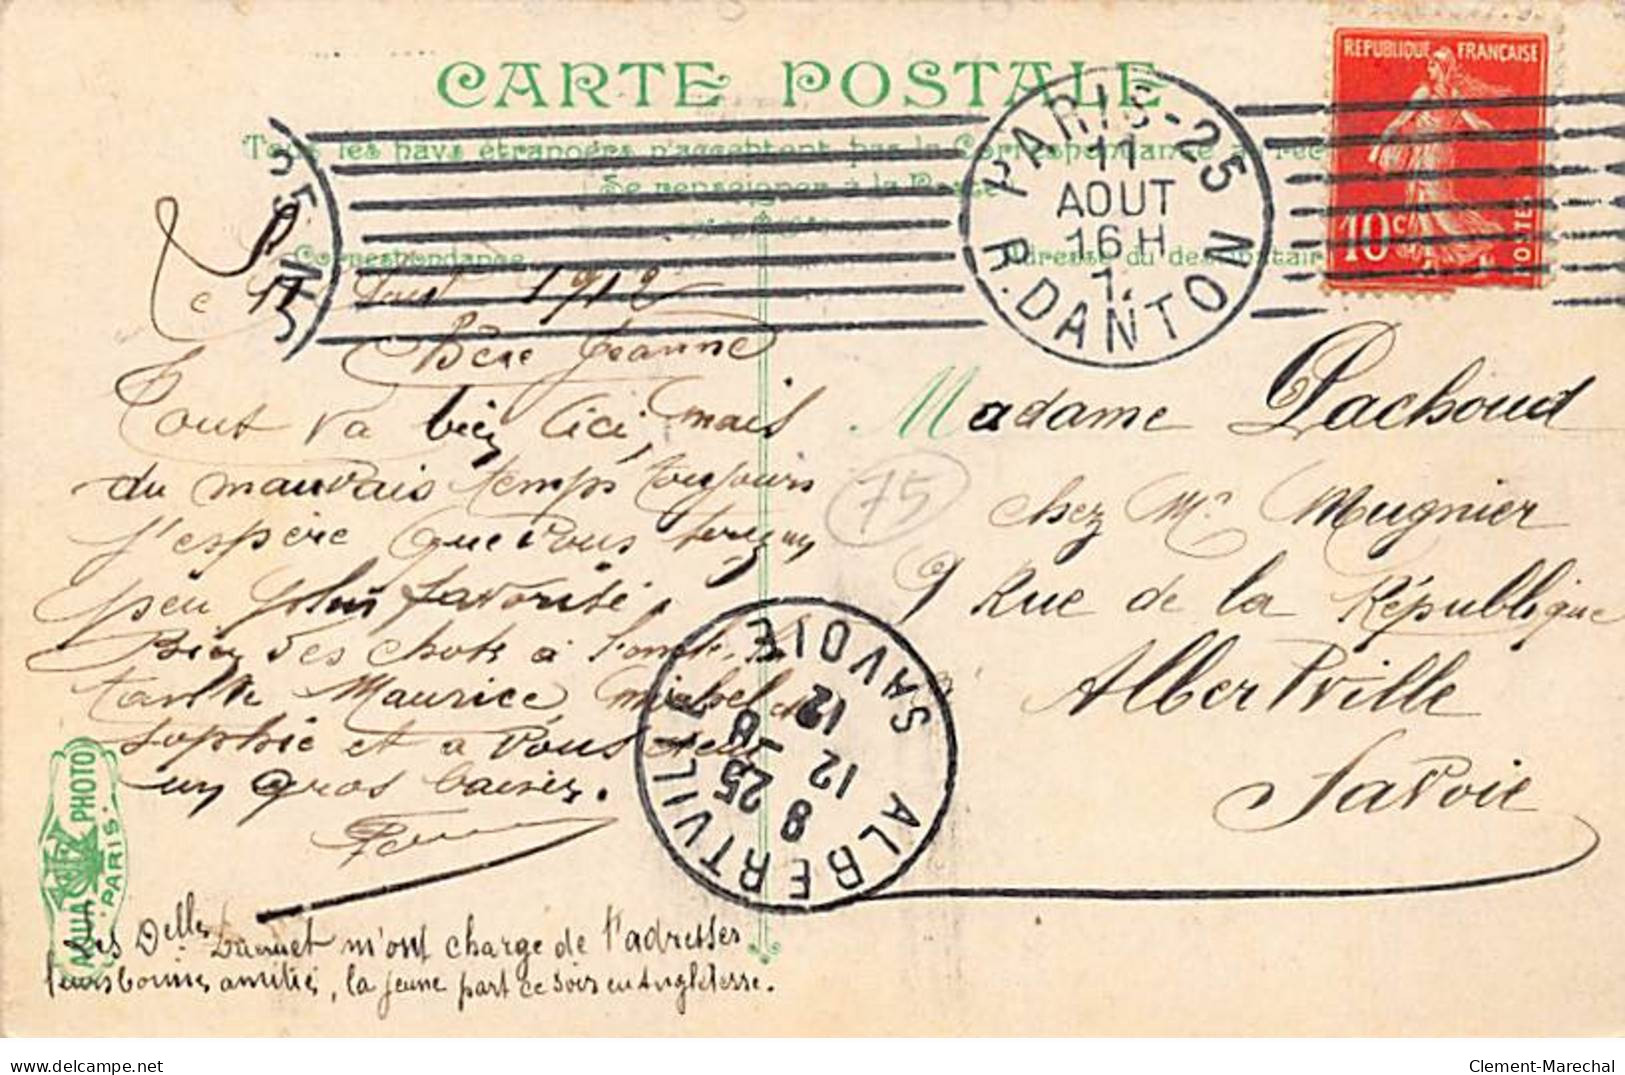 CARTE POSTALE
Tous les pays étrangers n'acceptent pas la Correspondance au rec
Se renseigner à la Poste
Correspondance
Adresse du destinataire
REPUBLIQUE FRANÇAISE
10c
POSTES
PARIS-25
11
AOUT
16H
R. DANTON
Le 11 Aout 1912
Chère Jeanne
Tout va bien ici, mais
du mauvais temps toujours
J'espère que vous
peu plus favorisé.
Bien des choses à
tante Maurice Michel
Sophie et a vous
un gros baiser.
Madame Pachoud
chez Mr Mugnier
9 Rue de la République
Albertville
Savoie
75
ALBERTVILLE SAVOIE
8 25
12 -8
12
AQUA PHOTO
PARIS
Les Delles m'ont chargé de t'adresser
leurs bonnes amitiés, la jeune part ce soir en Angleterre.
delcampe.net
Clement-Marechal